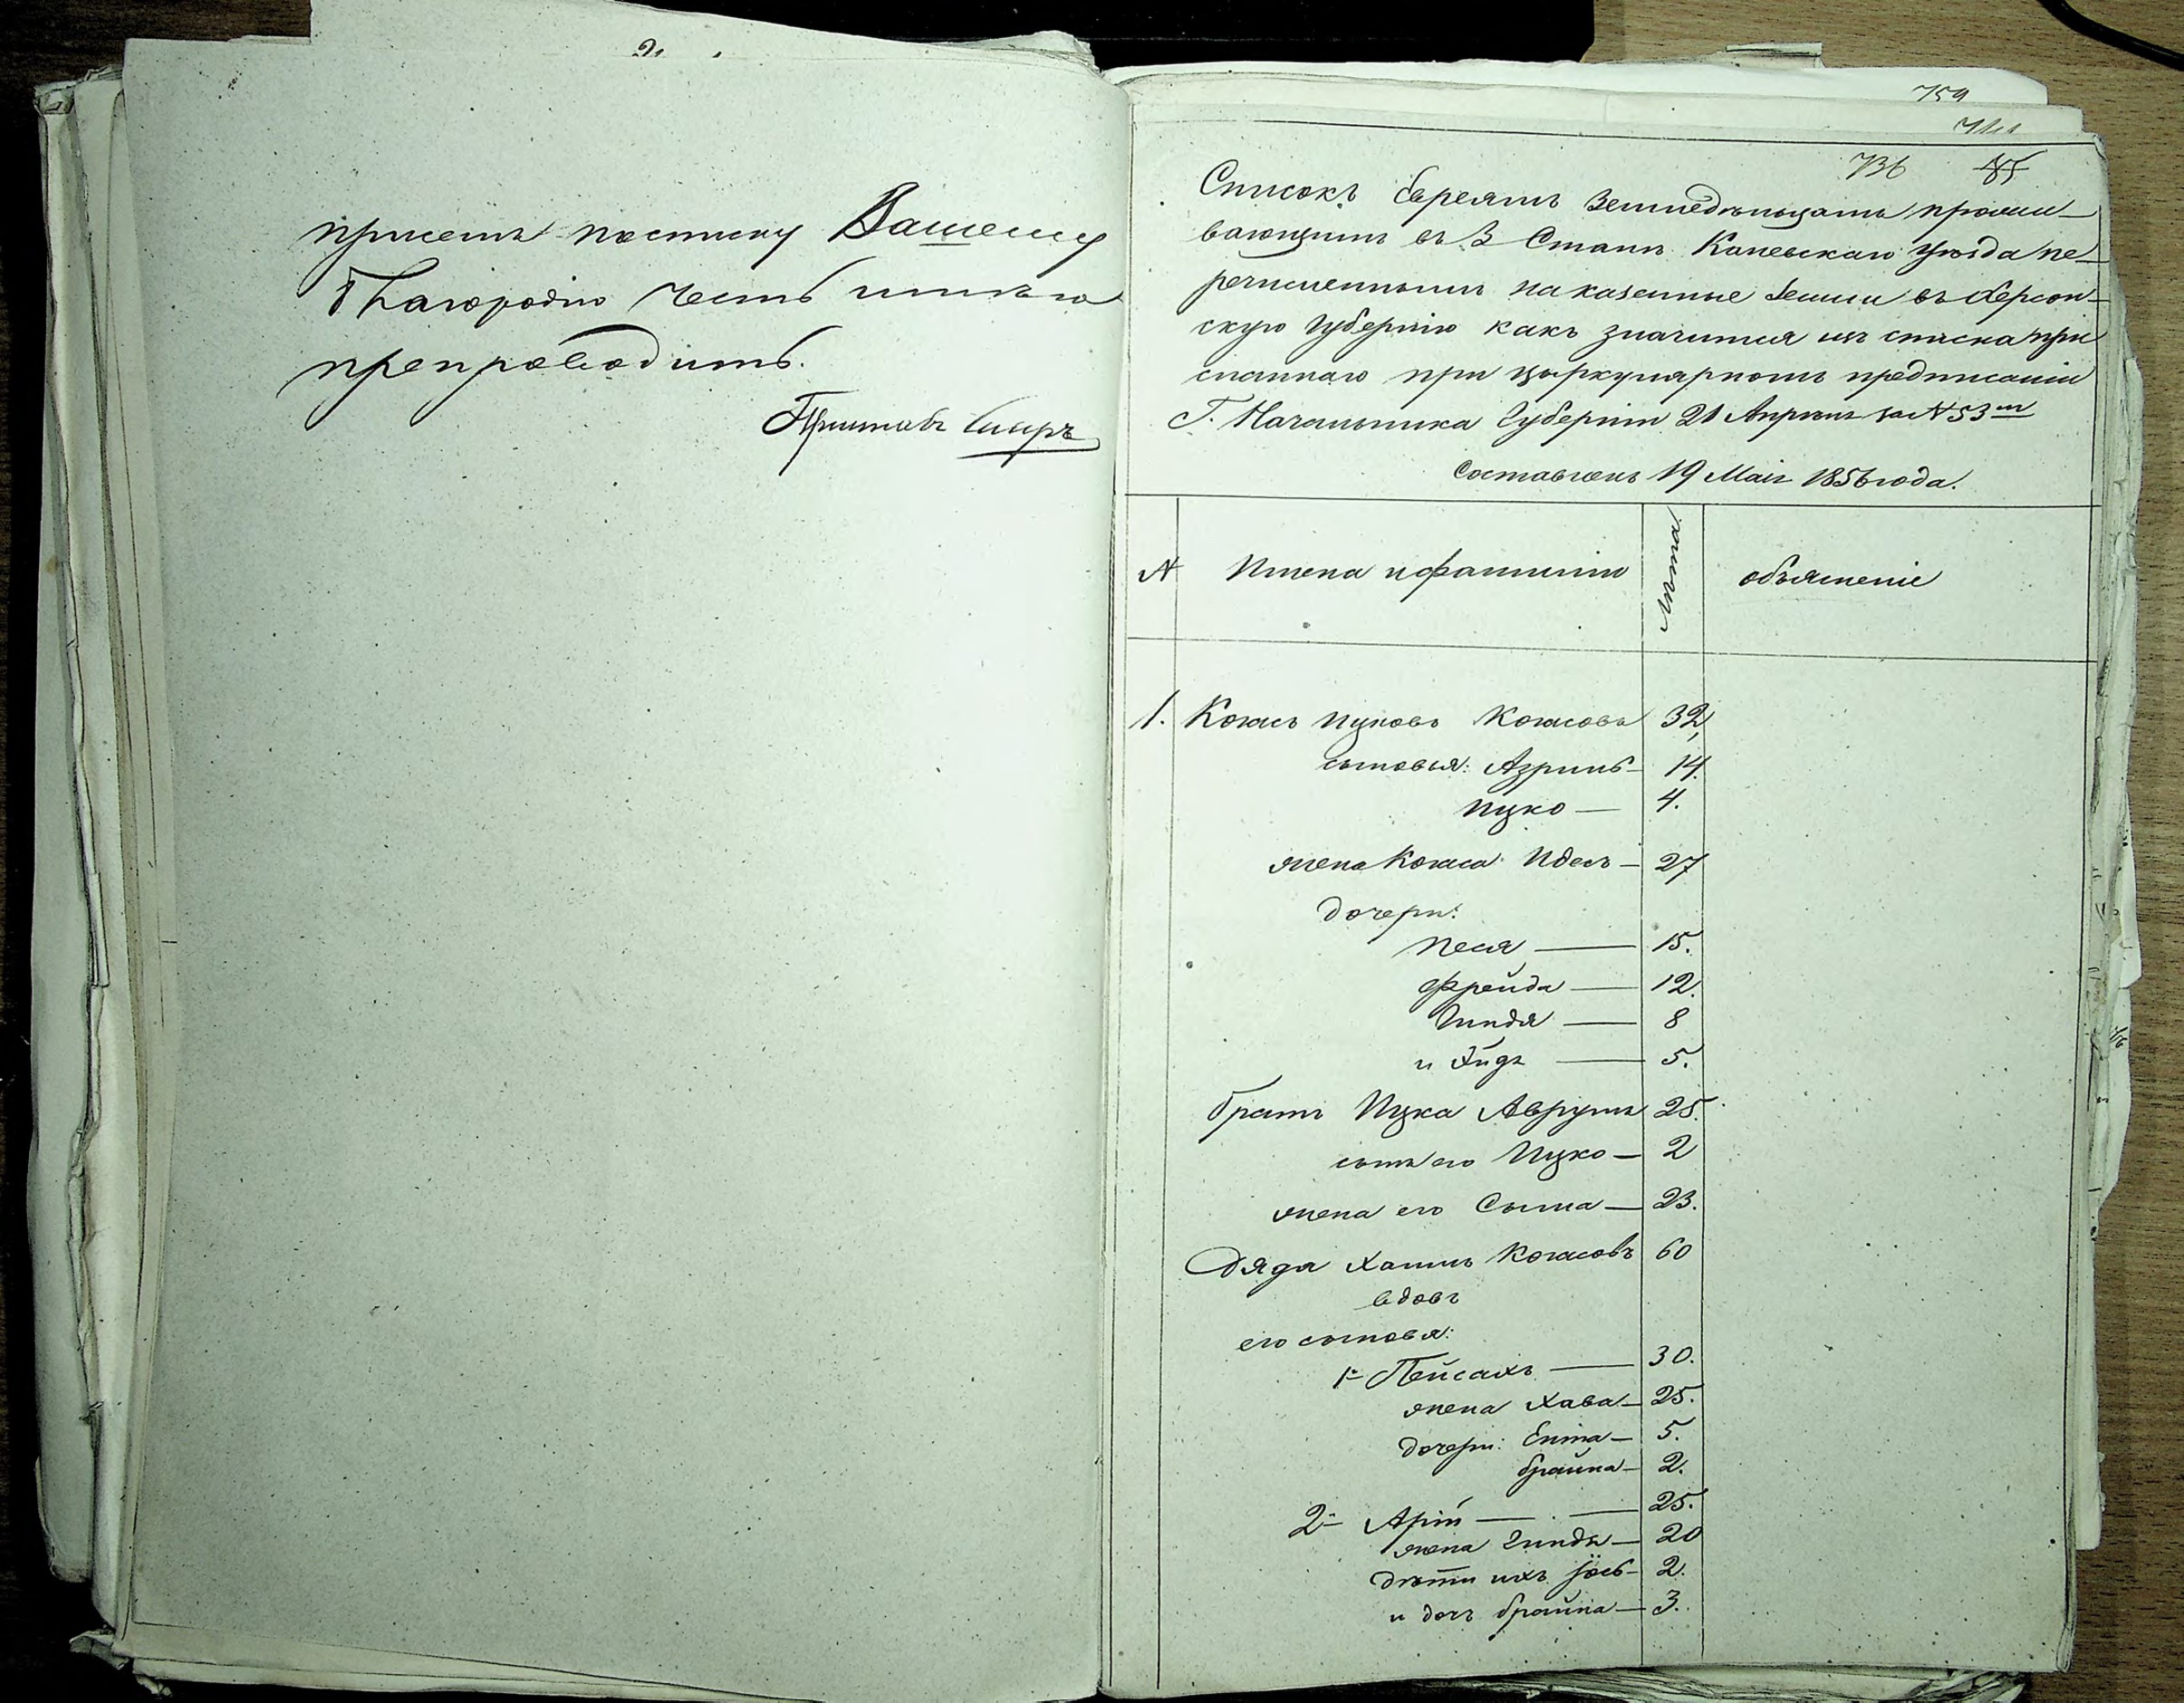 при семъ Вашему
благородію честь имѣю
препроводить.
Приставъ
759
736 85
Списокъ Евреямъ Земледѣльцамъ прожи-
вающимъ въ 3 Станѣ Каневскаго уѣзда пе-
речисленнымъ на казенные земли въ Херсон-
скую Губернію какъ значится изъ списка при
сланнаго при циркулярномъ предписаніи
Г. Начальника Губерніи 21 Апрѣля за № 53 м
Составленъ 19 Мая 1856 года.
№ Имена и фамиліи Лѣта объясненіе
1. Ицковъ 32
сыновья: Азриль 14.
Ицко 4.
жена Идесъ 27
дочери:
Песя 15.
Фрейда 12.
Гиндя 8
и 5.
братъ Ицка Аврумъ 25.
сынъ его Ицко 2
жена его Сыма 23.
Дядя Хаимъ 60
вдовъ
его сыновья:
1й Пейсахъ 30.
жена Хава 25.
дочери: Ента 5.
брайна 2.
2й Арiй 25.
жена Гиндя 20
дѣти ихъ Іось 2.
и дочъ брайна 3.